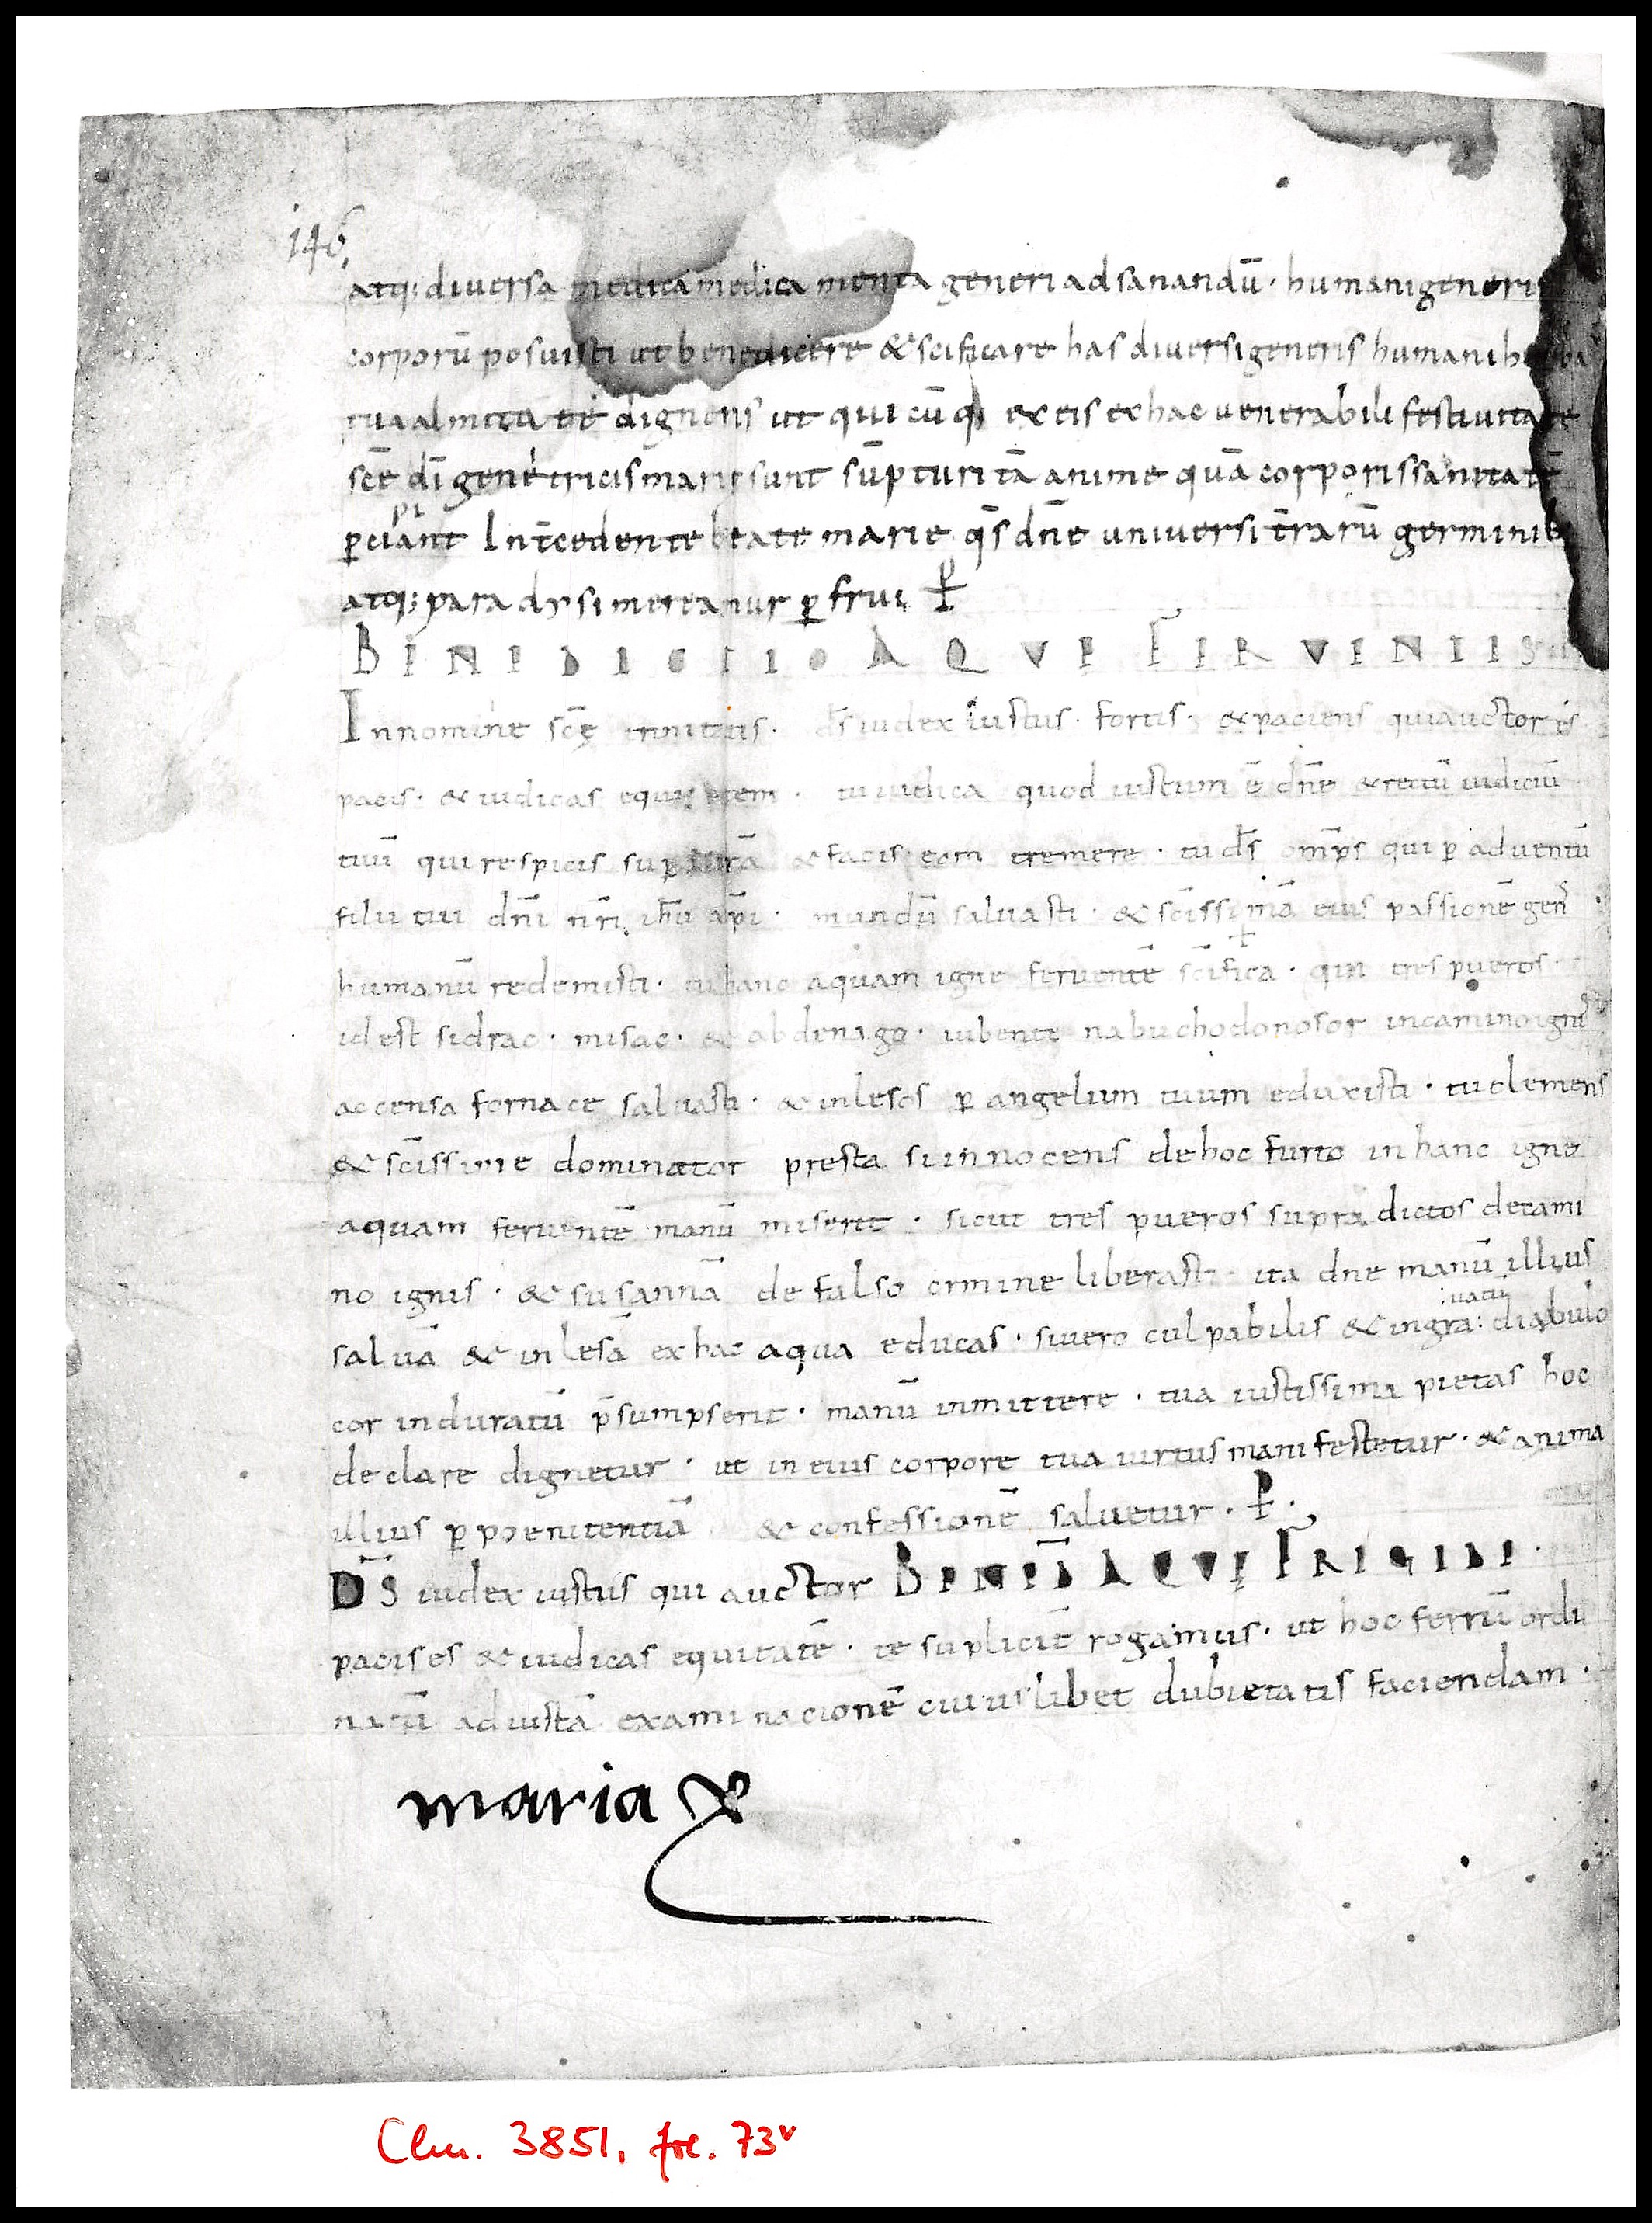 146.
atq; diuersa medica menta generi ad sanandū · humani generis
corporū posuisti ut benedicere & scificare has diuersi generis humani
tua almitate digneris ut qui cūq ex eis ex hac uenerabili festiuitate
scē dī genetricis marie sunt sūpturi tā anime quā corporis sanitatē
pi
perciant Int̄cedente beate marie q̄s dn̄e uniuersi t̄rarū germinib
atq; paradysi mereanur perfrui P
BENEDICTIO AQVE FERVENTIS
In nomine scē trinitatis · d̄s iudex iustus · fortis · & paciens qui auctor es
pacis · & iudicas equitatem · tu iudica quod iustum ē dn̄e & rectū iudiciū
tuū qui respicis super t̄rā & facis eam tremere · tu d̄s om̄ps qui per aduentū
filii tui dn̄i n̄ri ih̄u xp̄i · mundū saluasti · & sc̄issimā eius passionē gen
humanū redemisti · tu hanc aquam igne feruentē sc̄ifica · qui tres pueros
id est sidrac · misac · & abdenago · iubente nabuchodonosor in camino igni
accensa fornace saluasti · & inlesos per angelum tuum eduxisti · tu clemens
& sc̄issime dominator presta si innocens de hoc furto in hanc igne
aquam feruentē manū miserit · sicut tres pueros supra dictos de cami
no ignis · & susannā de falso crimine liberasti · ita dn̄e manū illius
: uatū
saluā & inlesā ex hac aqua educas · si uero culpabilis & ingra: diabulo
cor induratū p̄sumpserit · manū inmittere · tua iustissima pietas hoc
declare dignetur · ut in eius corpore tua uirtus manifestetur · & anima
illius per poenitentiā & confessionē saluetur · P ·
D̄S iudex iustus qui auctor BENED̄ AQVE FRIGIDE ·
pacis es & iudicas equitatē · te suplicit̄ rogamus · ut hoc ferrū ordi
natū ad iustā examinacionē cuiuslibet dubietatis faciendam ·
maria
Clm. 3851, fol. 73v